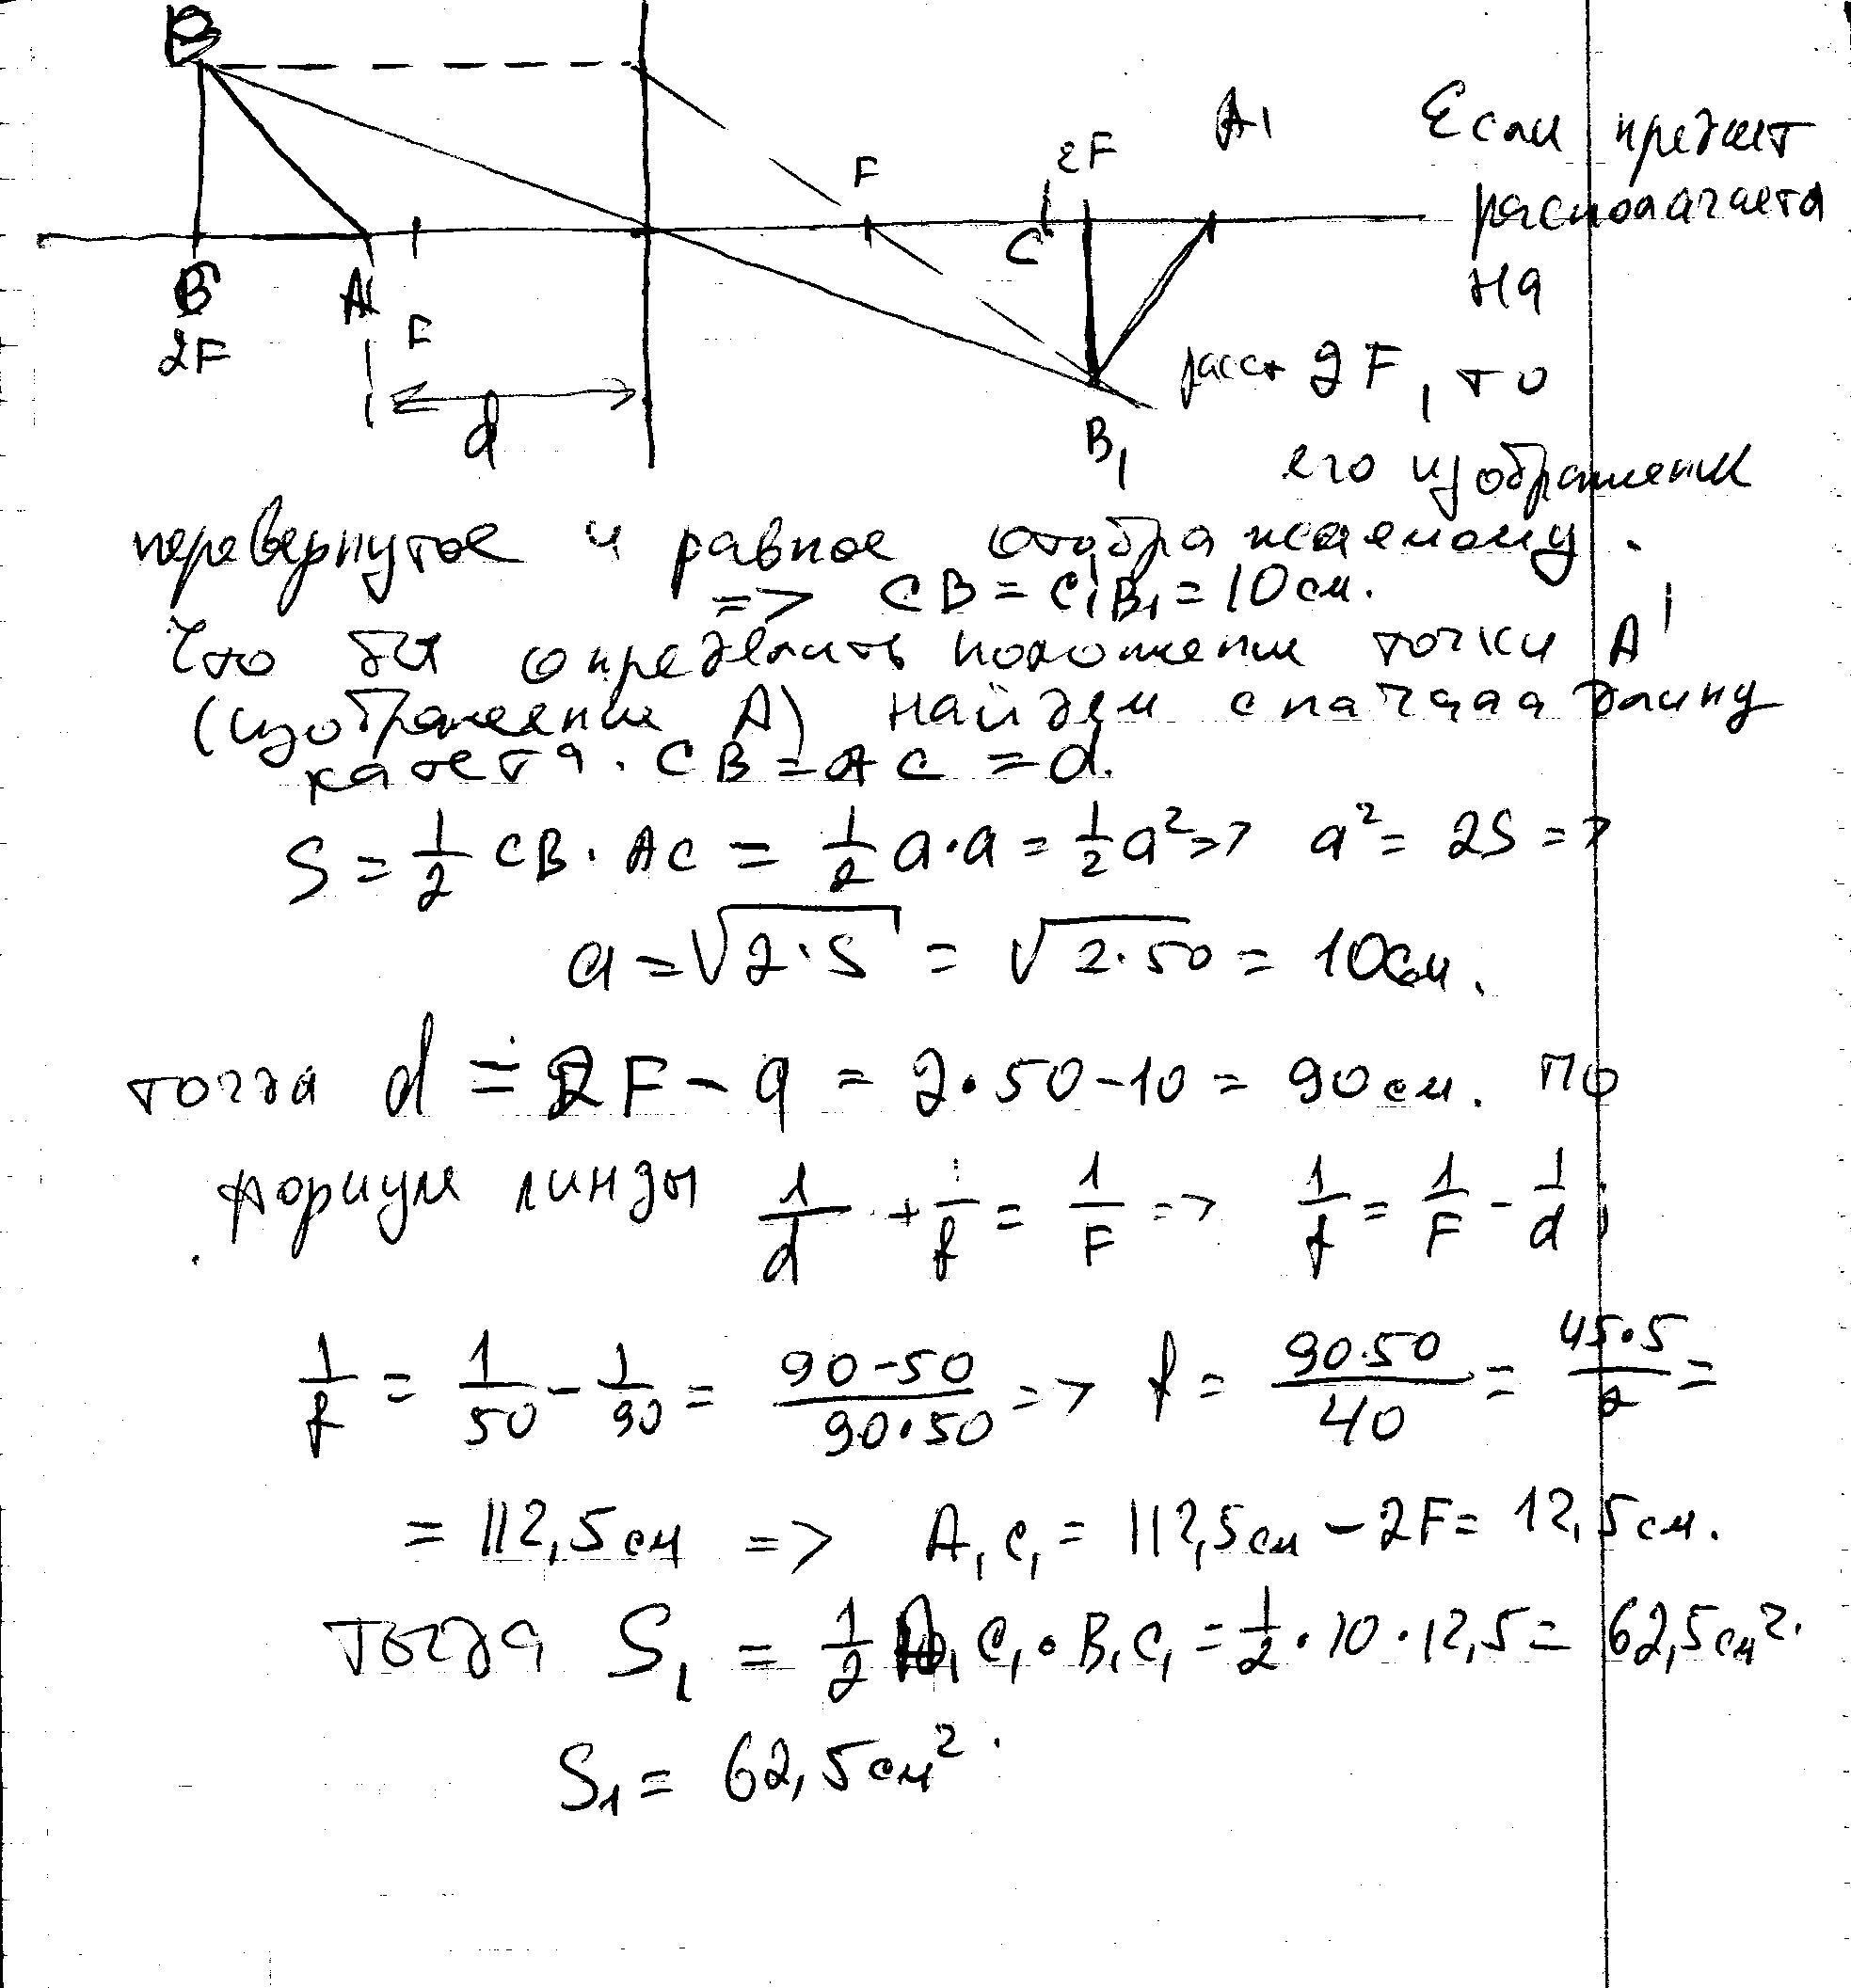 B
F
2F
A1
C
B
A
2F
F
d
B1
Если предмет
располагаета
на
расст 2F, то
его изображение
перевернутое и равное отображаемому.
=> CB = C1B1 = 10 см.
Что бы определить положение точки A'
(изображение A) найдем сначала длину
катета. CB = AC = a.
S = 1/2 CB · AC = 1/2 a·a = 1/2 a² => a² = 2S =>
a = √(2·S) = √(2·50) = 10 см.
тогда d = 2F - a = 2·50 - 10 = 90 см. по
формуле линзы 1/d + 1/f = 1/F => 1/f = 1/F - 1/d ;
1/f = 1/50 - 1/90 = (90-50)/(90·50) => f = (90·50)/40 = (45·5)/2 =
= 112,5 см => A1C1 = 112,5 см - 2F = 12,5 см.
тогда S1 = 1/2 A1C1 · B1C1 = 1/2 · 10 · 12,5 = 62,5 см².
S1 = 62,5 см².